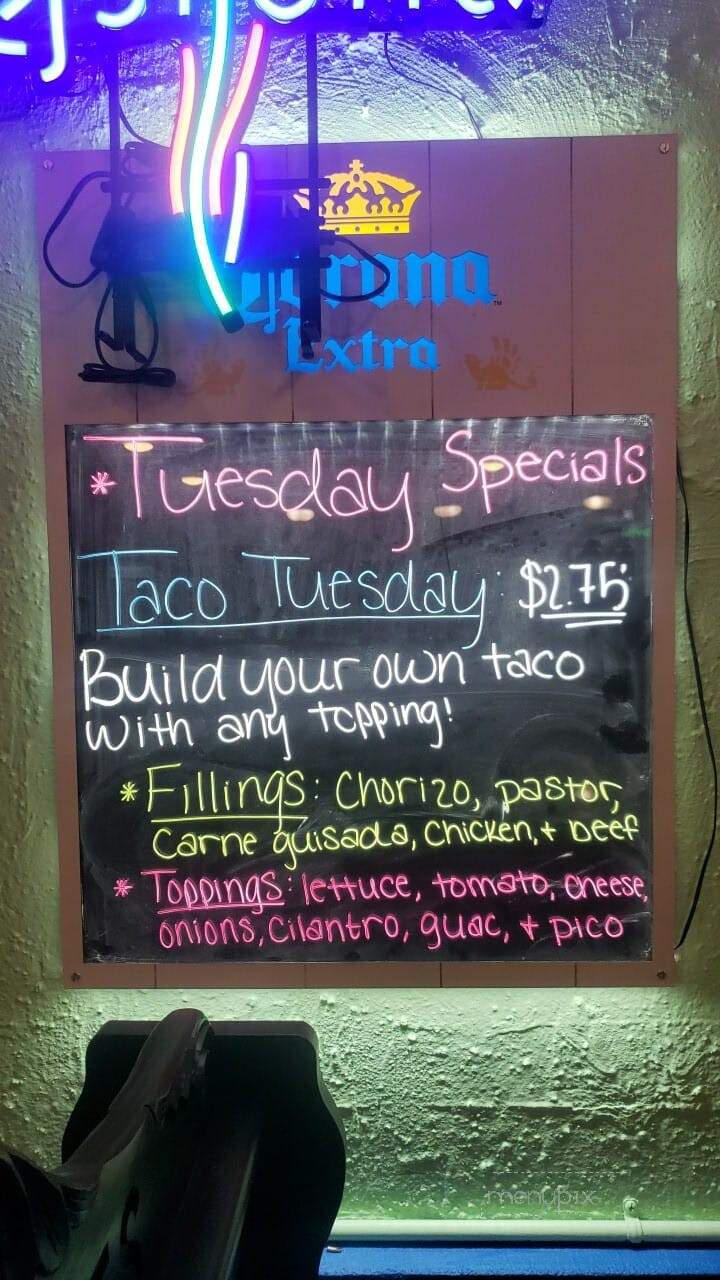 Corona
Extra
*Tuesday Specials
Taco Tuesday: $2.75
Build your own taco
with any topping!
* Fillings: Chorizo, pastor,
Carne guisada, Chicken, + beef
* Toppings: lettuce, tomato, cheese,
onions, Cilantro, guac, + pico
menupix